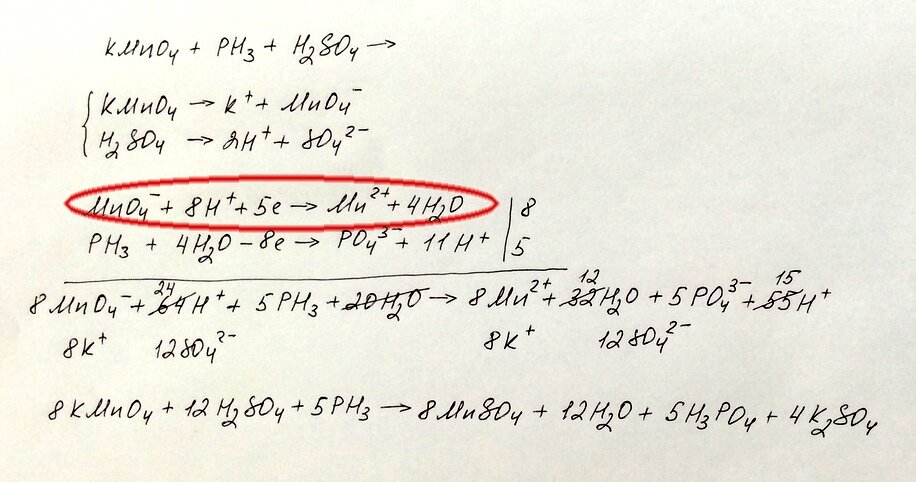 KMnO₄ + PH₃ + H₂SO₄ →
KMnO₄ → K⁺ + MnO₄⁻
H₂SO₄ → 2H⁺ + SO₄²⁻
MnO₄⁻ + 8H⁺ + 5e → Mn²⁺ + 4H₂O | 8
PH₃ + 4H₂O - 8e → PO₄³⁻ + 11H⁺ | 5
24 12 15
8MnO₄⁻ + 64H⁺ + 5PH₃ + 20H₂O → 8Mn²⁺ + 32H₂O + 5PO₄³⁻ + 55H⁺
8K⁺ 12SO₄²⁻ 8K⁺ 12SO₄²⁻
8KMnO₄ + 12H₂SO₄ + 5PH₃ → 8MnSO₄ + 12H₂O + 5H₃PO₄ + 4K₂SO₄